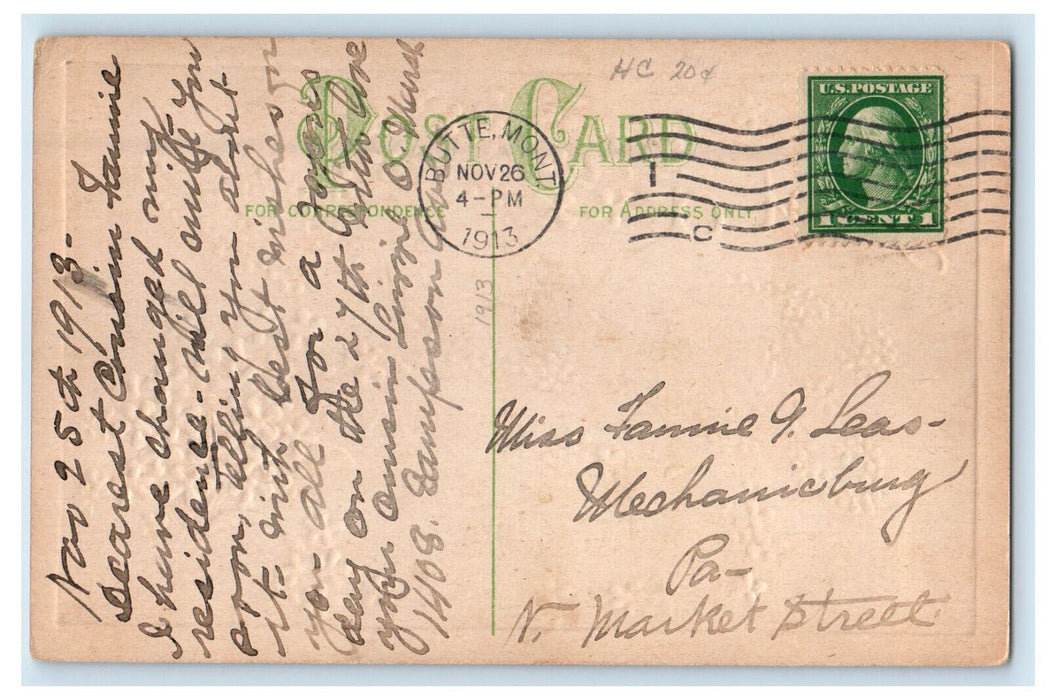 HC 20¢
POST CARD
FOR CORRESPONDENCE
FOR ADDRESS ONLY
BUTTE, MONT.
NOV 26
4-PM
1913
1
C
U.S. POSTAGE
1 CENT 1
1913
Nov 25th 1913-
Dearest Cousin Fannie
I have changed my
residence. Will write you
soon, telling you about
it- with best wishes for
you all for a joyous
day on the 27th I am Love
your cousin Lizzie O. Marsh
1408. Sampson
Miss Fannie G. Leas-
Mechanicsburg
Pa-
N. Market Street